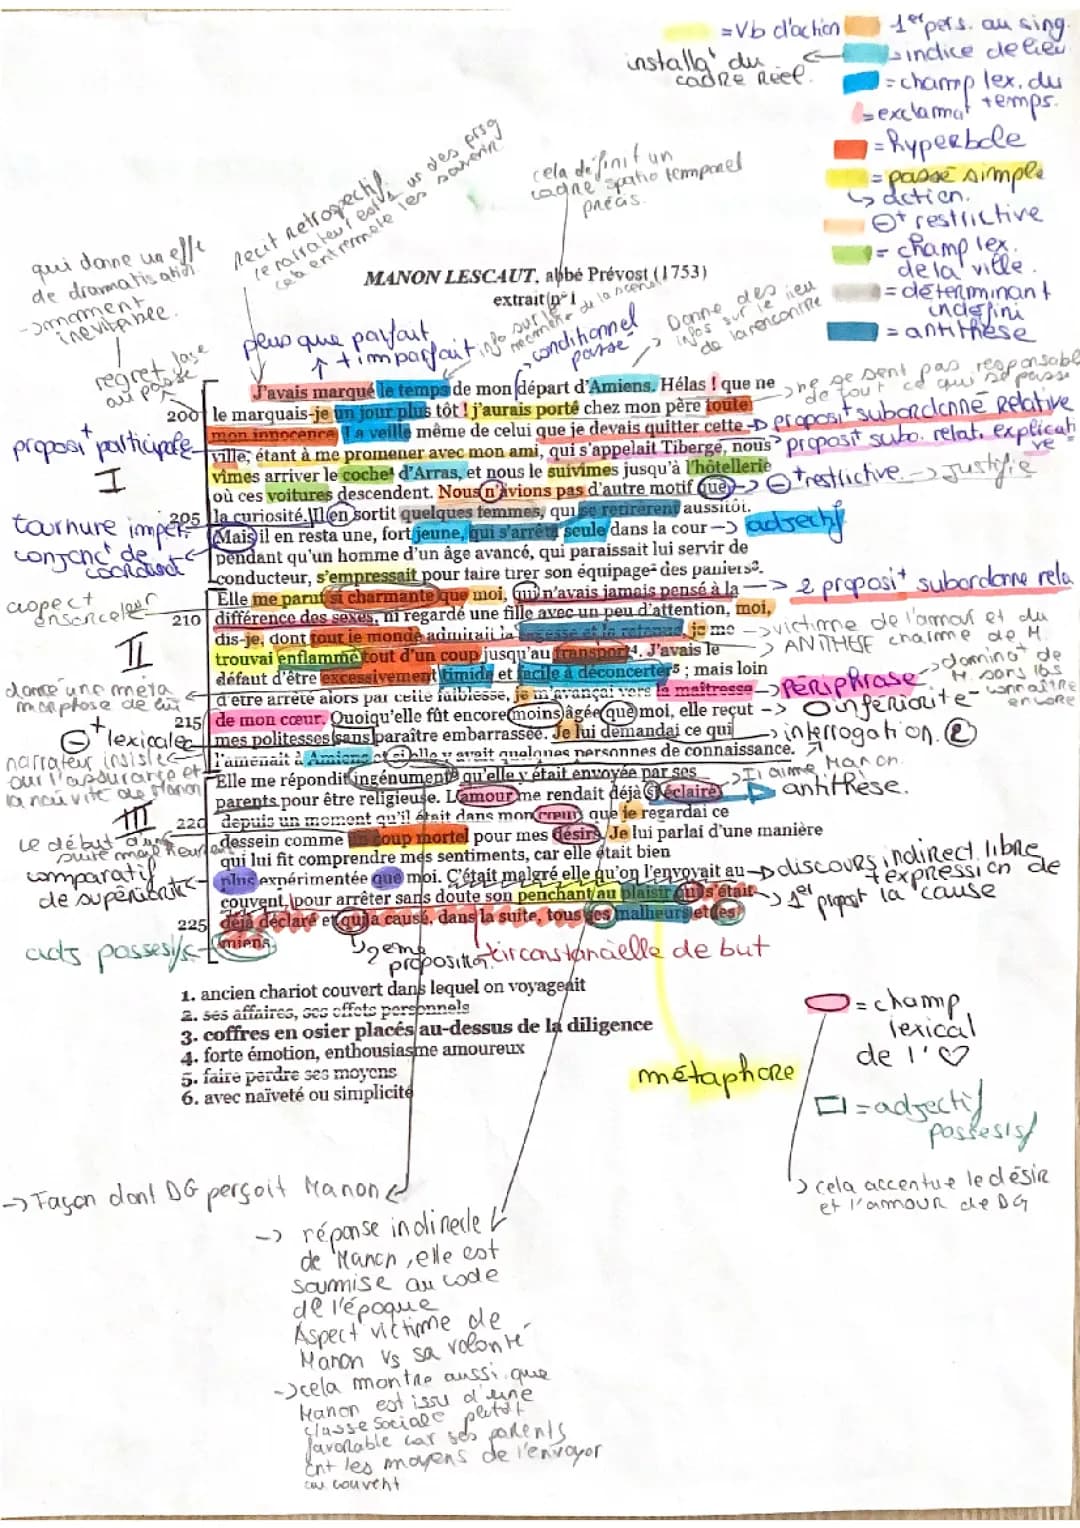 =Vb d'action
1er pers. au sing.
installa° du cadre réel.
indice de lieu
= champ lex. du temps.
= exclama°
= hyperbole
= passé simple
↳ action.
⊖+ restrictive
= champ lex. de la ville.
= déterminant indéfini
= antithèse
cela définit un cadre spatio temporel précis.
récit retrospectif
qui donne un effe de dramatisation
-> moment inévitable.
regret
au passé
plus que parfait
↑ + imparfait
conditionnel passé
Donne des infos sur le lieu de la rencontre
MANON LESCAUT, abbé Prévost (1753)
extrait n° 1
J'avais marqué le temps de mon départ d'Amiens. Hélas ! que ne
200 le marquais-je un jour plus tôt ! j'aurais porté chez mon père toute
mon innocence. La veille même de celui que je devais quitter cette
ville, étant à me promener avec mon ami, qui s'appelait Tiberge, nous
vîmes arriver le coche¹ d'Arras, et nous le suivîmes jusqu'à l'hôtellerie
où ces voitures descendent. Nous n'avions pas d'autre motif que
205 la curiosité. Il en sortit quelques femmes, qui se retirèrent aussitôt.
Mais il en resta une, fort jeune, qui s'arrêta seule dans la cour
pendant qu'un homme d'un âge avancé, qui paraissait lui servir de
conducteur, s'empressait pour faire tirer son équipage² des paniers³.
Elle me parut si charmante que moi, qui n'avais jamais pensé à la
210 différence des sexes, ni regardé une fille avec un peu d'attention, moi,
dis-je, dont tout le monde admirait la sagesse et la retenue, je me
trouvai enflammé tout d'un coup jusqu'au transport⁴. J'avais le
défaut d'être excessivement timide et facile à déconcerter⁵ ; mais loin
d'être arrêté alors par cette faiblesse, je m'avançai vers la maîtresse
215 de mon cœur. Quoiqu'elle fût encore moins âgée que moi, elle reçut
mes politesses sans paraître embarrassée. Je lui demandai ce qui
l'amenait à Amiens et si elle y avait quelques personnes de connaissance.
Elle me répondit ingénument⁶ qu'elle y était envoyée par ses
parents pour être religieuse. L'amour me rendait déjà si éclairé
220 depuis un moment qu'il était dans mon cœur, que je regardai ce
dessein comme un coup mortel pour mes désirs. Je lui parlai d'une manière
qui lui fit comprendre mes sentiments, car elle était bien
plus expérimentée que moi. C'était malgré elle qu'on l'envoyait au
couvent, pour arrêter sans doute son penchant au plaisir qui s'était
225 déjà déclaré et qui a causé, dans la suite, tous ses malheurs et les
miens.
1. ancien chariot couvert dans lequel on voyageait
2. ses affaires, ses effets personnels
3. coffres en osier placés au-dessus de la diligence
4. forte émotion, enthousiasme amoureux
5. faire perdre ses moyens
6. avec naïveté ou simplicité
proposi+ participale
I
tournure imper.
conjonc° de coordinat°
aspect ensorceleur
II
donne une métamorphose de lui
⊖+ lexicale
narrateur insiste sur l'assurance et la naïvité de Manon
III
Le début d'une suite malheureu
comparatif de supériorité
adj possessifs
-> ne se sent pas responsable de tout ce qui se passe
-> proposi+ subordonné relative
proposit° subo. relat. explicative
-> ⊖+ restrictive. -> Justifie
-> adjectif
-> 2 proposi+ subordonne rela
-> victime de l'amour et du charme de M.
-> ANTITHESE
-> PÉRIPHRASE
-> dominat° de M. sans la connaître encore
-> ⊖ inferiorité
-> interrogation. ②
-> Il aime Manon.
antithèse.
-> discours indirect libre
+ expression de la cause
-> 1er proposit°
2eme proposition
circonstancielle de but
métaphore
= champ lexical de l'♡
= adjectif possessif
↳ cela accentue le désir et l'amour de DG
-> Façon dont DG perçoit Manon
-> réponse indirecte
de Manon, elle est
soumise au code
de l'époque
Aspect victime de
Manon vs sa volonté
-> cela montre aussi que
Manon est issu d'une
classe sociale plutôt
favorable car ses parents
ont les moyens de l'envoyer
au couvent